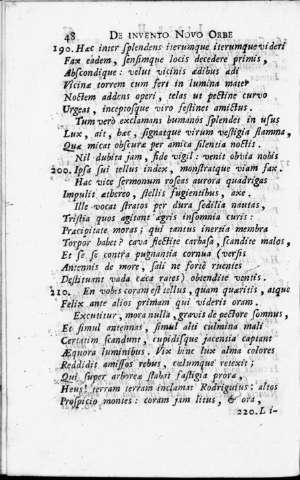 48 DE INVENTO NOVO ORBE
190. Hac inter splendens iterumque iterumque videri
Fax eadem, sensimque locis decedere primis,
Abscondique: velut vicinis ædibus ædi
Vicinæ torrem cum fert in lumina mater
Noctem addens operi, telas ut pectine curvo
Urgeat, inceptosque viro festinet amictus.
Tum verò exclamans humanos splendet in usus
Lux, ait, hæc, signatque virum vestigia flamma,
Quæ micat obscura per amica silentia noctis.
Nil dubita jam, fide vigil: venit obvia nobis
200. Ipsa sui tellus index, monstratque viam fax.
Hac vice sermonum roseas aurora quadrigas
Impulit æthereo, stellis fugientibus, axe.
Ille vocat stratos per dura sedilia nautas,
Tristia quos agitant ægris insomnia curis:
Præcipitate moras; qui tantus inertia membra
Torpor habet? cava flectite carbasa, scandite malos,
Et se se contra pugnantia cornua (versis
Antennis de more, sali ne foriè ruentes
Destituant vada cæca rates) obvertite ventis.
210. En vobis coram est tellus, quam quæritis, atque
Felix ante alios primam qui videris oram.
Excutitur, mora nulla, gravis de pectore somnus,
Et simul antennas, simul alti culmina mali
Certatim scandunt, cupidisque jacentia captant
Æquora luminibus. Vix hinc lux alma colores
Reddidit amissos rebus, cœlumque retexit:
Qui super arboreæ stabat fastigia proræ,
Heus! terram terram inclamat Rodriguius: altos
Prospicio montes: coram jam litus, & ora,
220. Li-